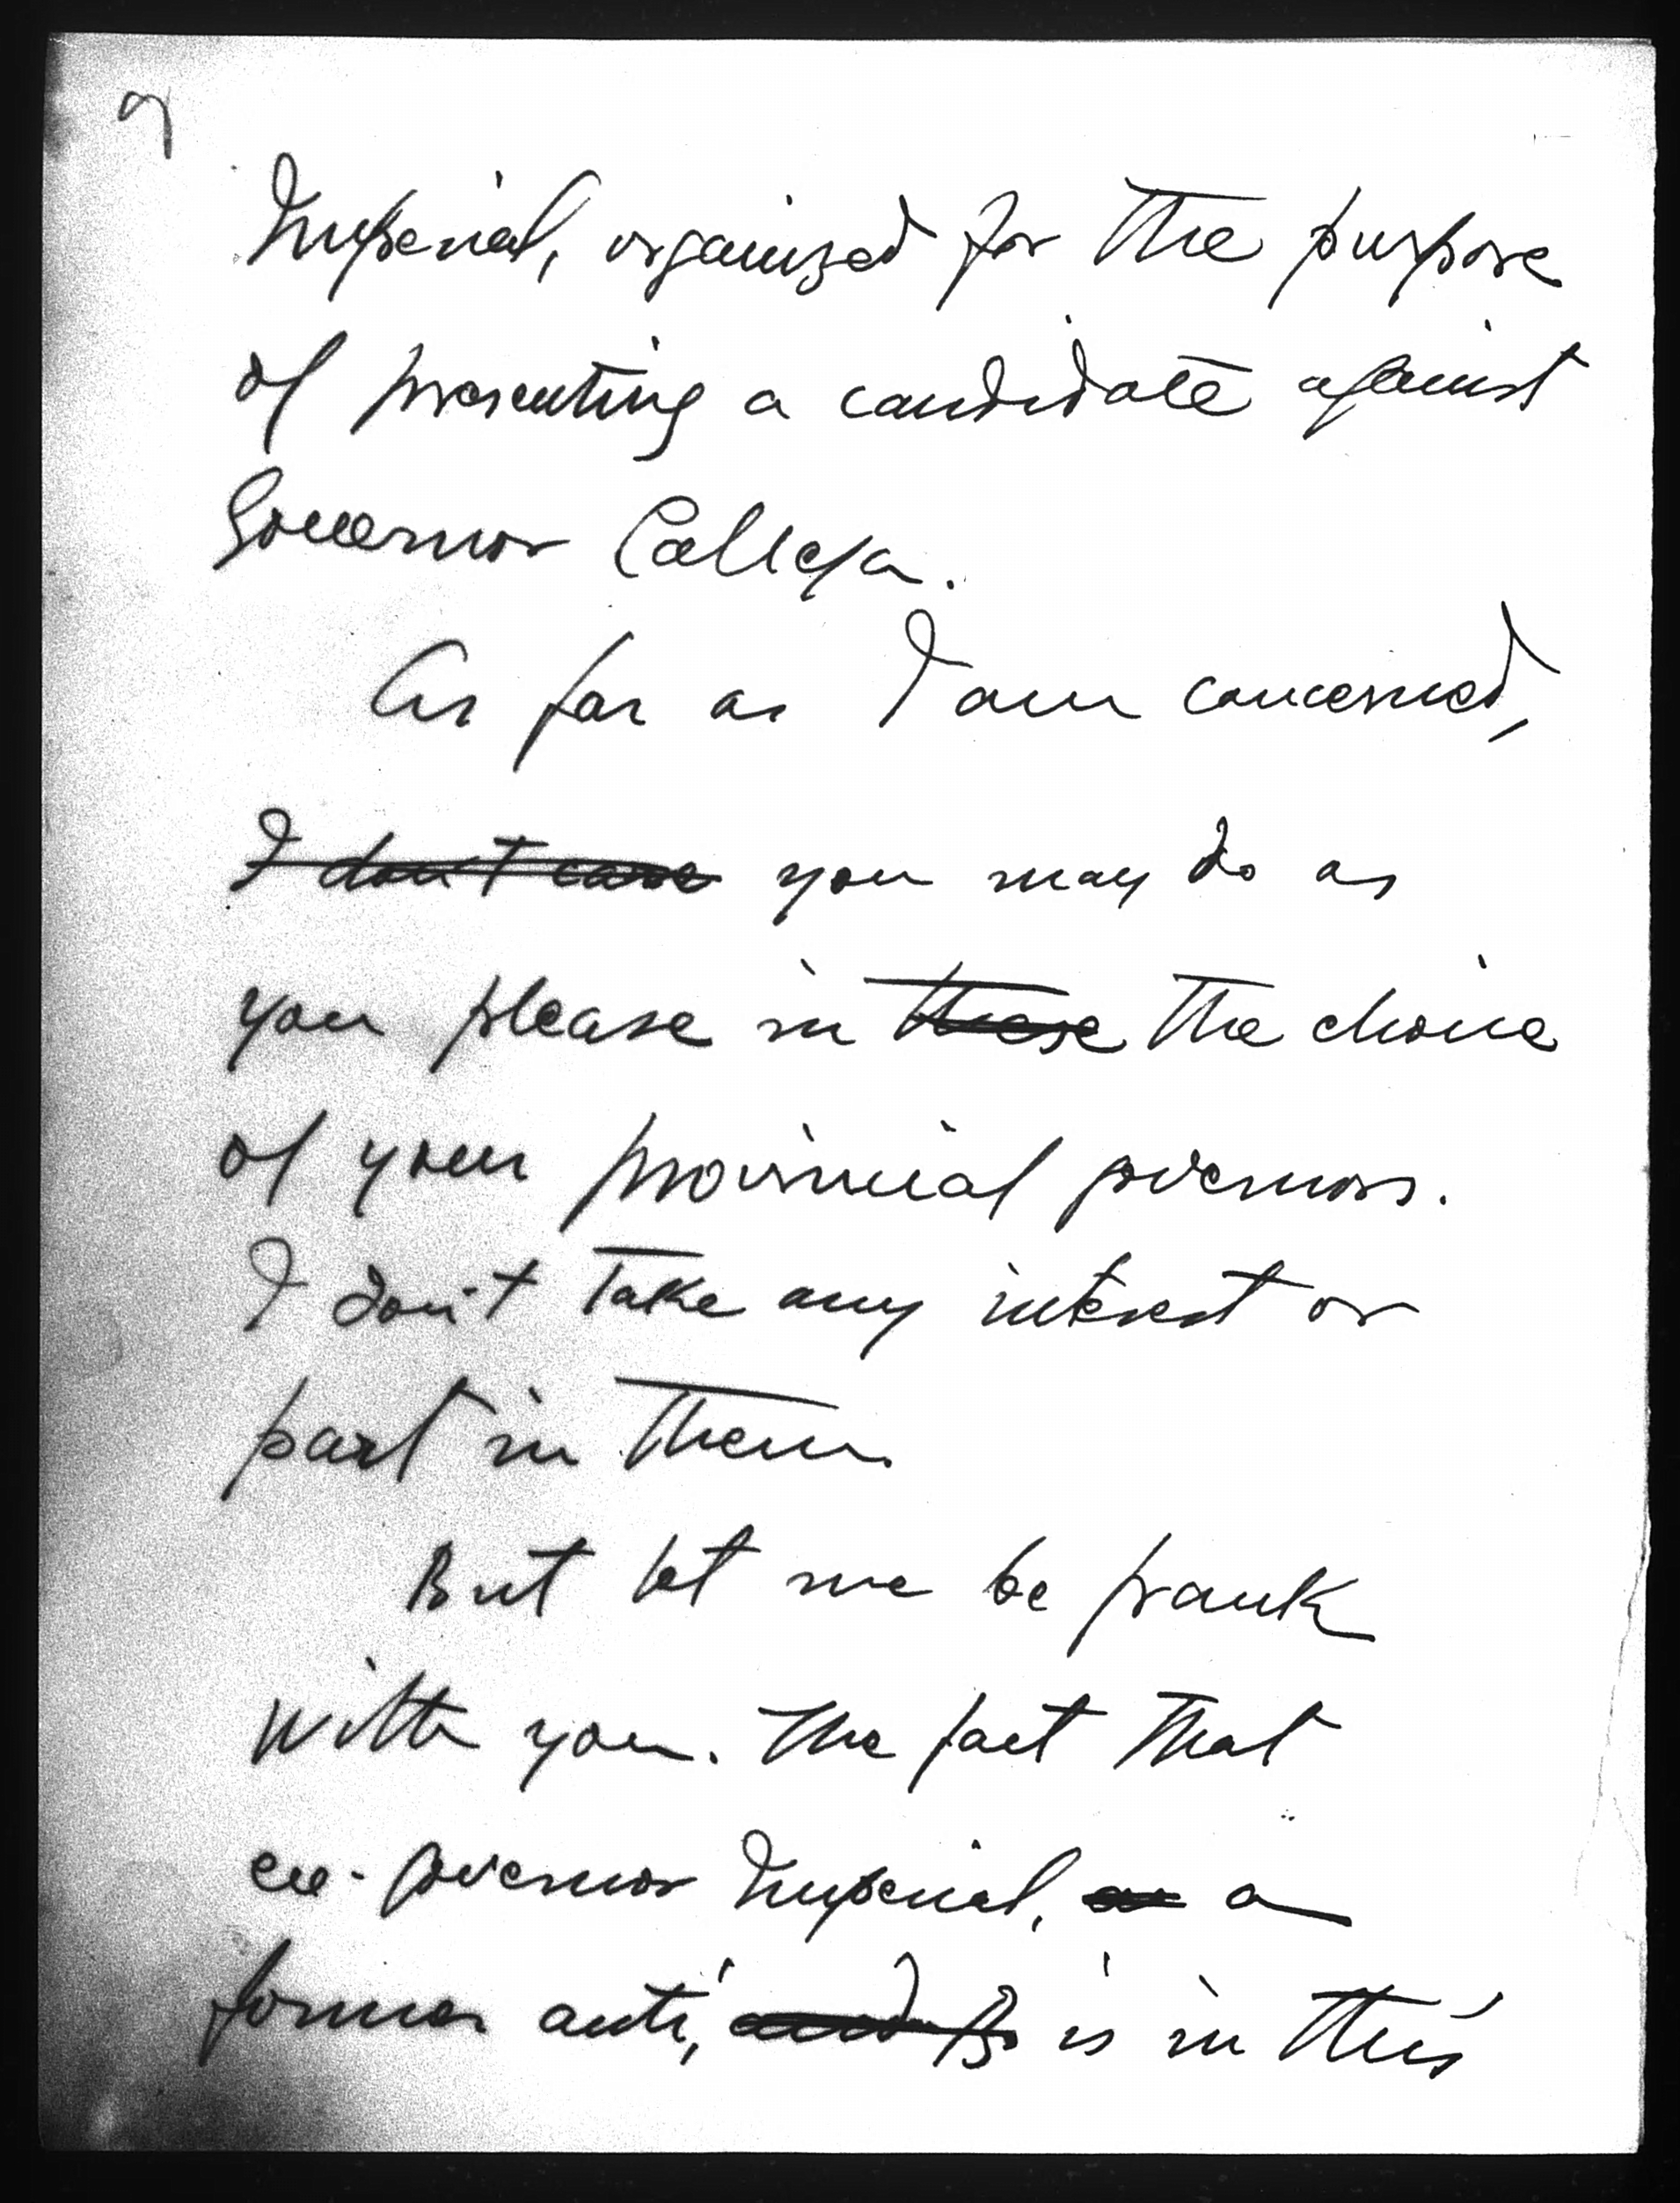 9
Imperial, organized for the purpose
of presenting a candidate against
Governor Calleja.
As far as I am concerned,
I don't care you may do as
you please in these the choice
of your provincial governors.
I don't take any interest or
part in them.
But let me be frank
with you. The fact that
ex-governor Imperial, a
former anti, and is in this